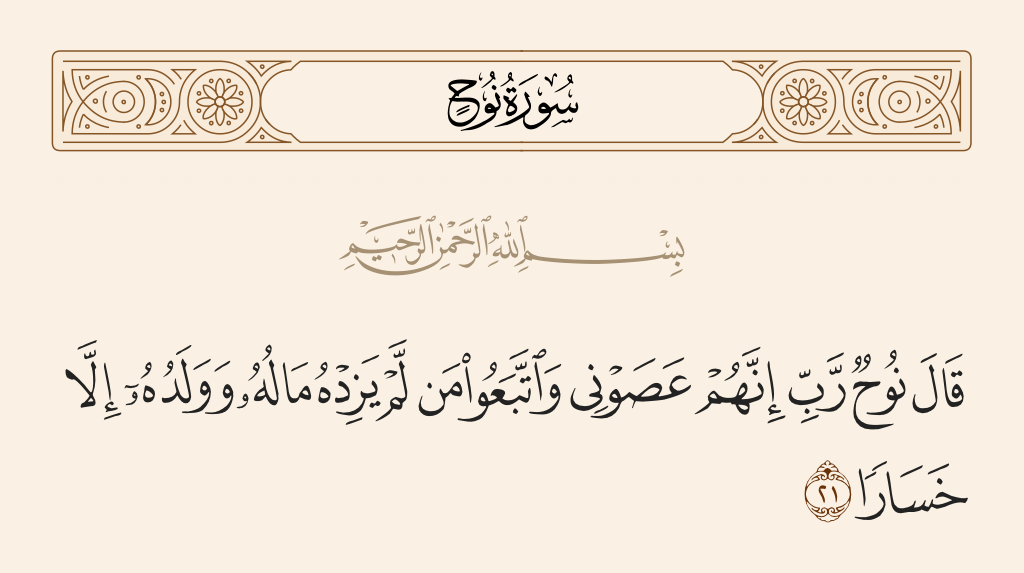 سُورَةُ نُوحٍ
بِسْمِ ٱللَّهِ ٱلرَّحْمَٰنِ ٱلرَّحِيمِ
قَالَ نُوحٌ رَّبِّ إِنَّهُمْ عَصَوْنِى وَٱتَّبَعُوا۟ مَن لَّمْ يَزِدْهُ مَالُهُۥ وَوَلَدُهُۥٓ إِلَّا
خَسَارًا ٢١